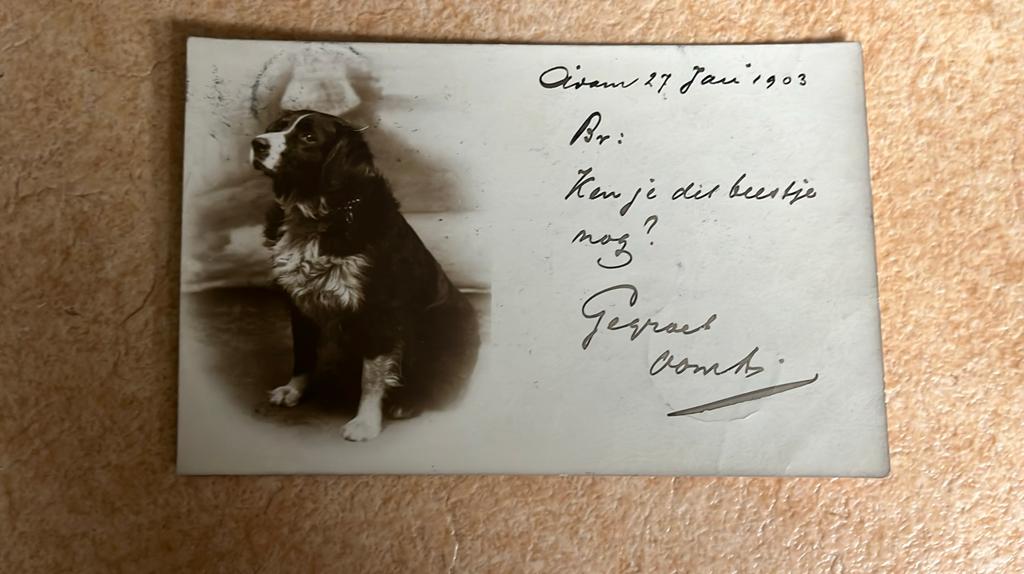 A'dam 27 Jan 1903
Br:
Ken je dit beestje
nog?
Gegroet